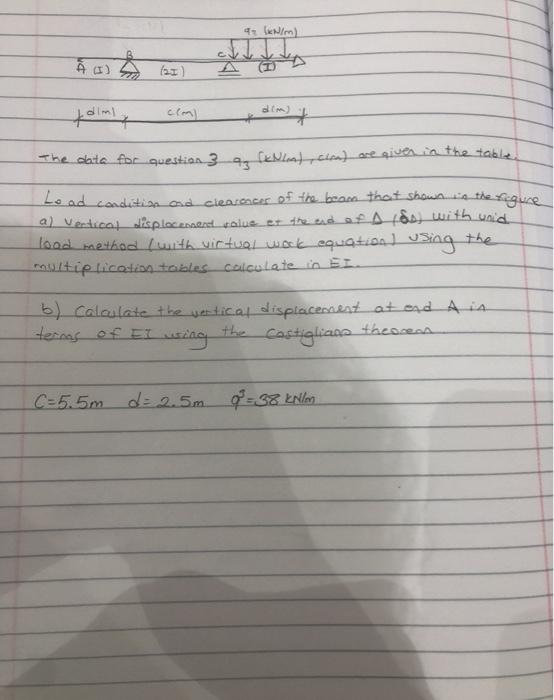 q3 (kN/m)
B
C
A (I)
(2I)
(I)
d(m)
c(m)
d(m)
The data for question 3 q3 (kN/m), c(m) are given in the table.
Load condition and clearences of the beam that shown in the figure
a) Vertical displacement value at the end of Δ (δΔ) with unid
load method (with virtual work equation) using the
multiplication tables calculate in EI.
b) Calculate the vertical displacement at end A in
terms of EI using the Castigliano theorem
C=5.5m d=2.5m q3=38 kN/m